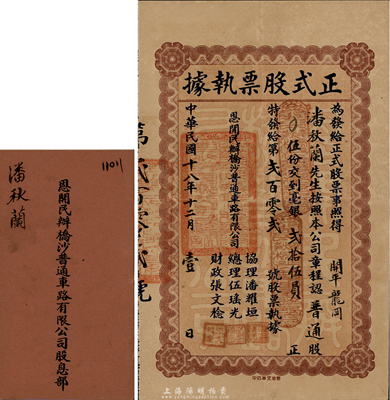 正式股票執據
為發給正式股票事照得
開平龍岡
潘秋蘭先生按照本公司章程認普通股
伍份交到毫銀弍拾伍員正
特發給第弍百零弍號股票執據
恩開民辦橋沙普通車路有限公司
協理潘耀垣
總理伍瑤光
財政張文檢
中華民國十八年十二月壹日
第弍百零弍號
1101
潘秋蘭
恩開民辦橋沙普通車路有限公司股息部
上海阳明拍卖